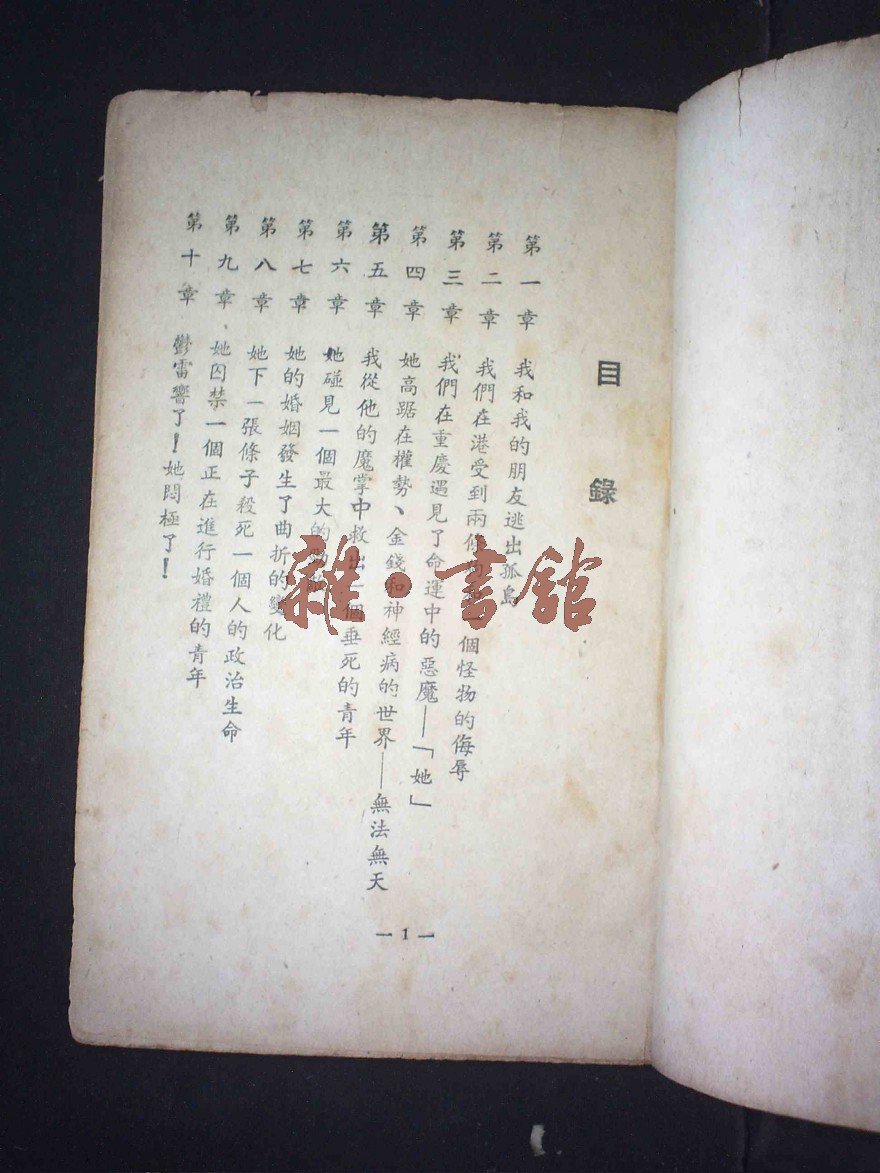 目錄
第一章 我和我的朋友逃出孤島
第二章 我們在港受到兩條 一個怪物的侮辱
第三章 我們在重慶遇見了命運中的惡魔——「她」
第四章 她高踞在權勢、金錢和神經病的世界——無法無天
第五章 我從他的魔掌中救出一個垂死的青年
第六章 她碰見一個最大的
第七章 她的婚姻發生了曲折的變化
第八章 她下一張條子殺死一個人的政治生命
第九章 她囚禁一個正在進行婚禮的青年
第十章 鬱雷響了！她悶極了！
—1—
雜·書館